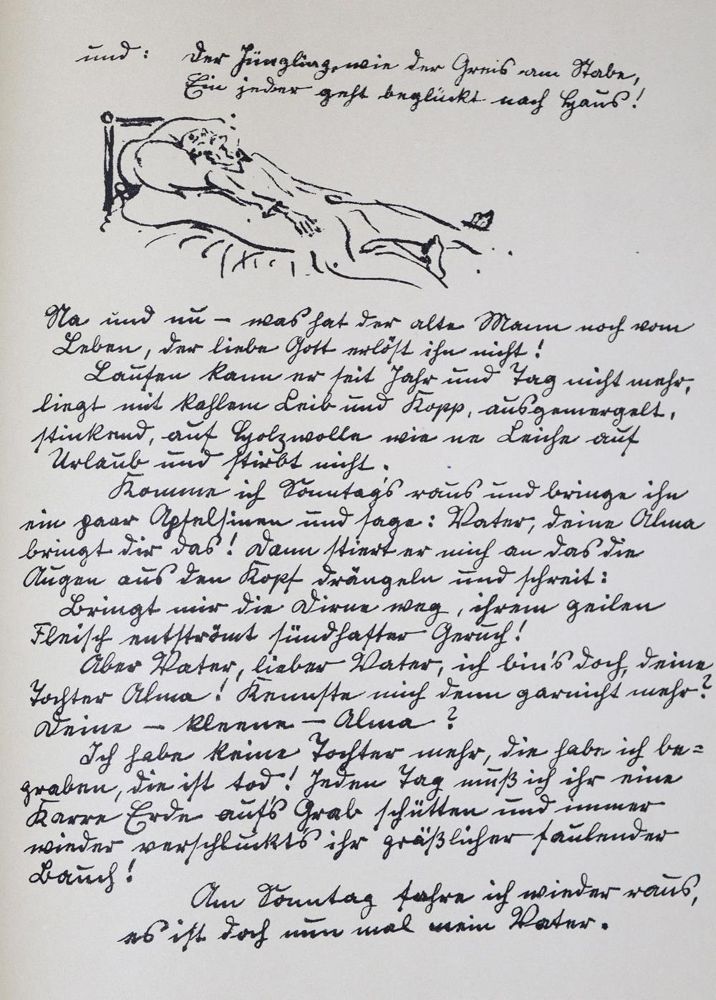 und: der Jüngling, wie der Greis am Stabe,
Ein jeder geht beglückt nach Haus!
Na und nu – was hat der alte Mann noch vom
Leben, der liebe Gott erlöst ihn nicht!
Laufen kann er seit Jahr und Tag nicht mehr,
liegt mit kahlem Leib und Kopp, ausgemergelt,
stinkend, auf Holzwolle wie ne Leiche auf
Urlaub und stirbt nicht.
Komme ich Sonntags raus und bringe ihn
ein paar Apfelsinen und sage: Vater, deine Alma
bringt dir das! Dann stiert er mich an das die
Augen aus den Kopf drängeln und schreit:
Bringt mir die Dirne weg, ihrem geilen
Fleisch entströmt sündhafter Geruch!
Aber Vater, lieber Vater, ich bin's doch, deine
Tochter Alma! Kennste mich denn garnicht mehr?
Deine – kleene – Alma?
Ich habe keine Tochter mehr, die habe ich be=
graben, die ist tod! Jeden Tag muß ich ihr eine
Karre Erde auf's Grab schütten und immer
wieder verschluckts ihr gräßlicher faulender
Bauch!
Am Sonntag fahre ich wieder raus,
es ist doch nun mal mein Vater.